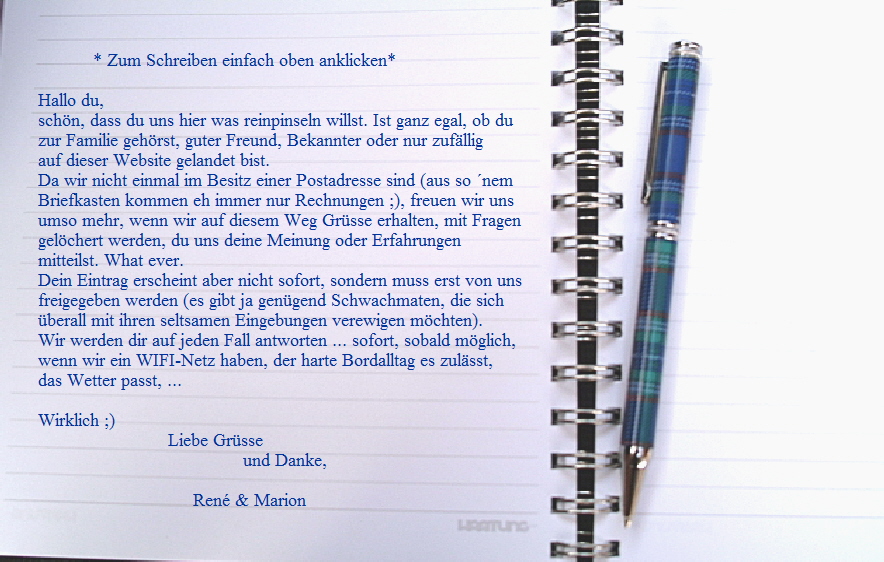 * Zum Schreiben einfach oben anklicken*
Hallo du,
schön, dass du uns hier was reinpinseln willst. Ist ganz egal, ob du
zur Familie gehörst, guter Freund, Bekannter oder nur zufällig
auf dieser Website gelandet bist.
Da wir nicht einmal im Besitz einer Postadresse sind (aus so ´nem
Briefkasten kommen eh immer nur Rechnungen ;), freuen wir uns
umso mehr, wenn wir auf diesem Weg Grüsse erhalten, mit Fragen
gelöchert werden, du uns deine Meinung oder Erfahrungen
mitteilst. What ever.
Dein Eintrag erscheint aber nicht sofort, sondern muss erst von uns
freigegeben werden (es gibt ja genügend Schwachmaten, die sich
überall mit ihren seltsamen Eingebungen verewigen möchten).
Wir werden dir auf jeden Fall antworten ... sofort, sobald möglich,
wenn wir ein WIFI-Netz haben, der harte Bordalltag es zulässt,
das Wetter passt, ...
Wirklich ;)
Liebe Grüsse
und Danke,
René & Marion